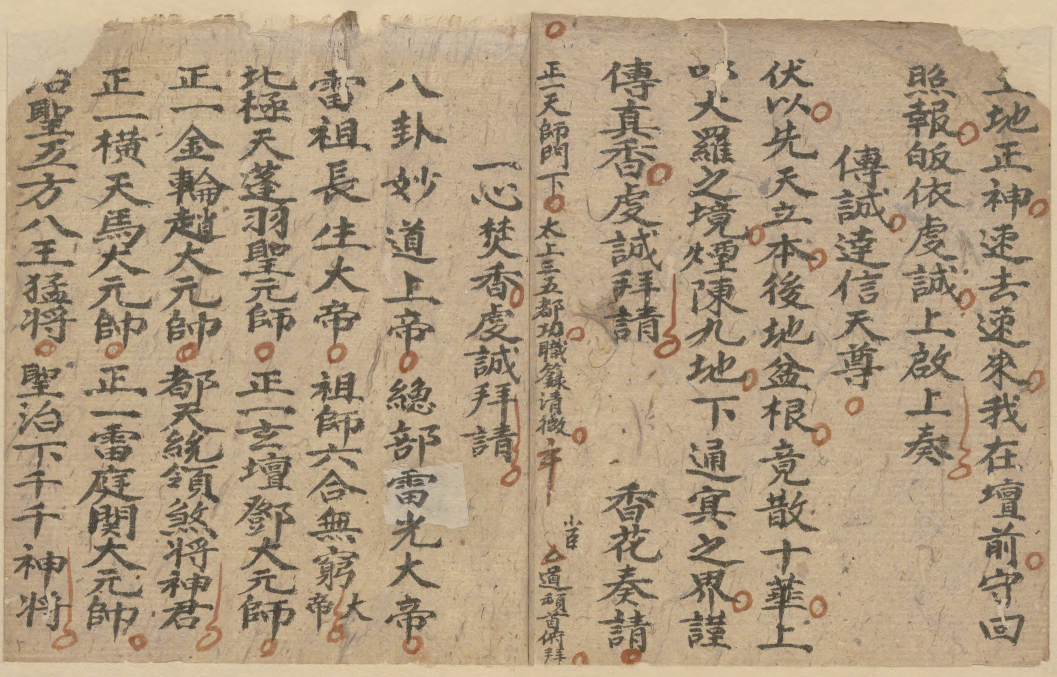 地正神速去速來我在壇前守回
照報皈依虔誠上啟上奏
傳誠達信天尊
伏以先天立本後地盆根竟散十華上
大羅之境煙陳九地下通冥之界謹
傳真香虔誠拜請 香花奏請
正一天師門下太上三五都功職籙清微 小臣 道頓首俯拜
一心焚香虔誠拜請
八卦妙道上帝總部雷光大帝
雷祖長生大帝祖師六合無窮大帝
北極天蓬羽聖元師正一玄壇鄧大元師
正一金輪趙大元帥都天統領煞将神君
正一橫天馬大元帥正一雷庭関大元帥
聖五方八王猛将聖治下千千神将